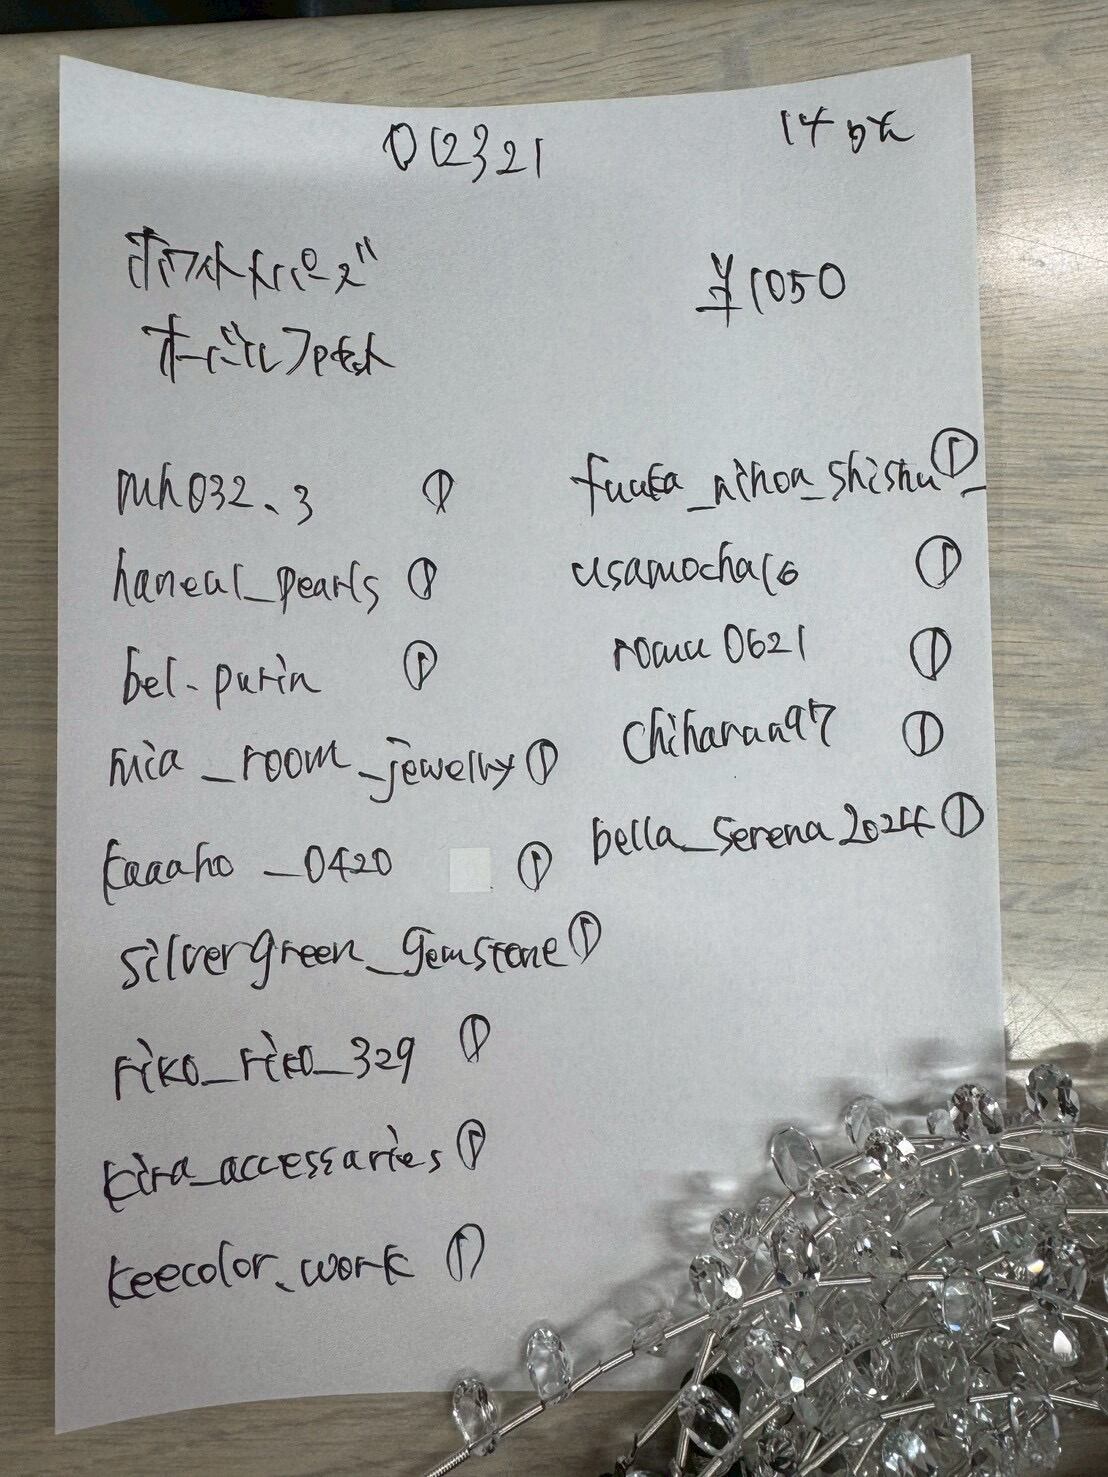 012321
14pk
ホワイトトパーズ
オーバルファセット
¥1050
mh032.3 ①
haneul_pearls ①
bel.purin ①
mia_room_jewelry ①
kaaaho_0420 ①
silvergreen_gemstone ①
riko_riko_329 ①
kira_accessaries ①
keecolor.work ①
fuuka_nihon_shishu_ ①
usamocha16 ①
romu0621 ①
chiharun97 ①
bella_serena2024 ①